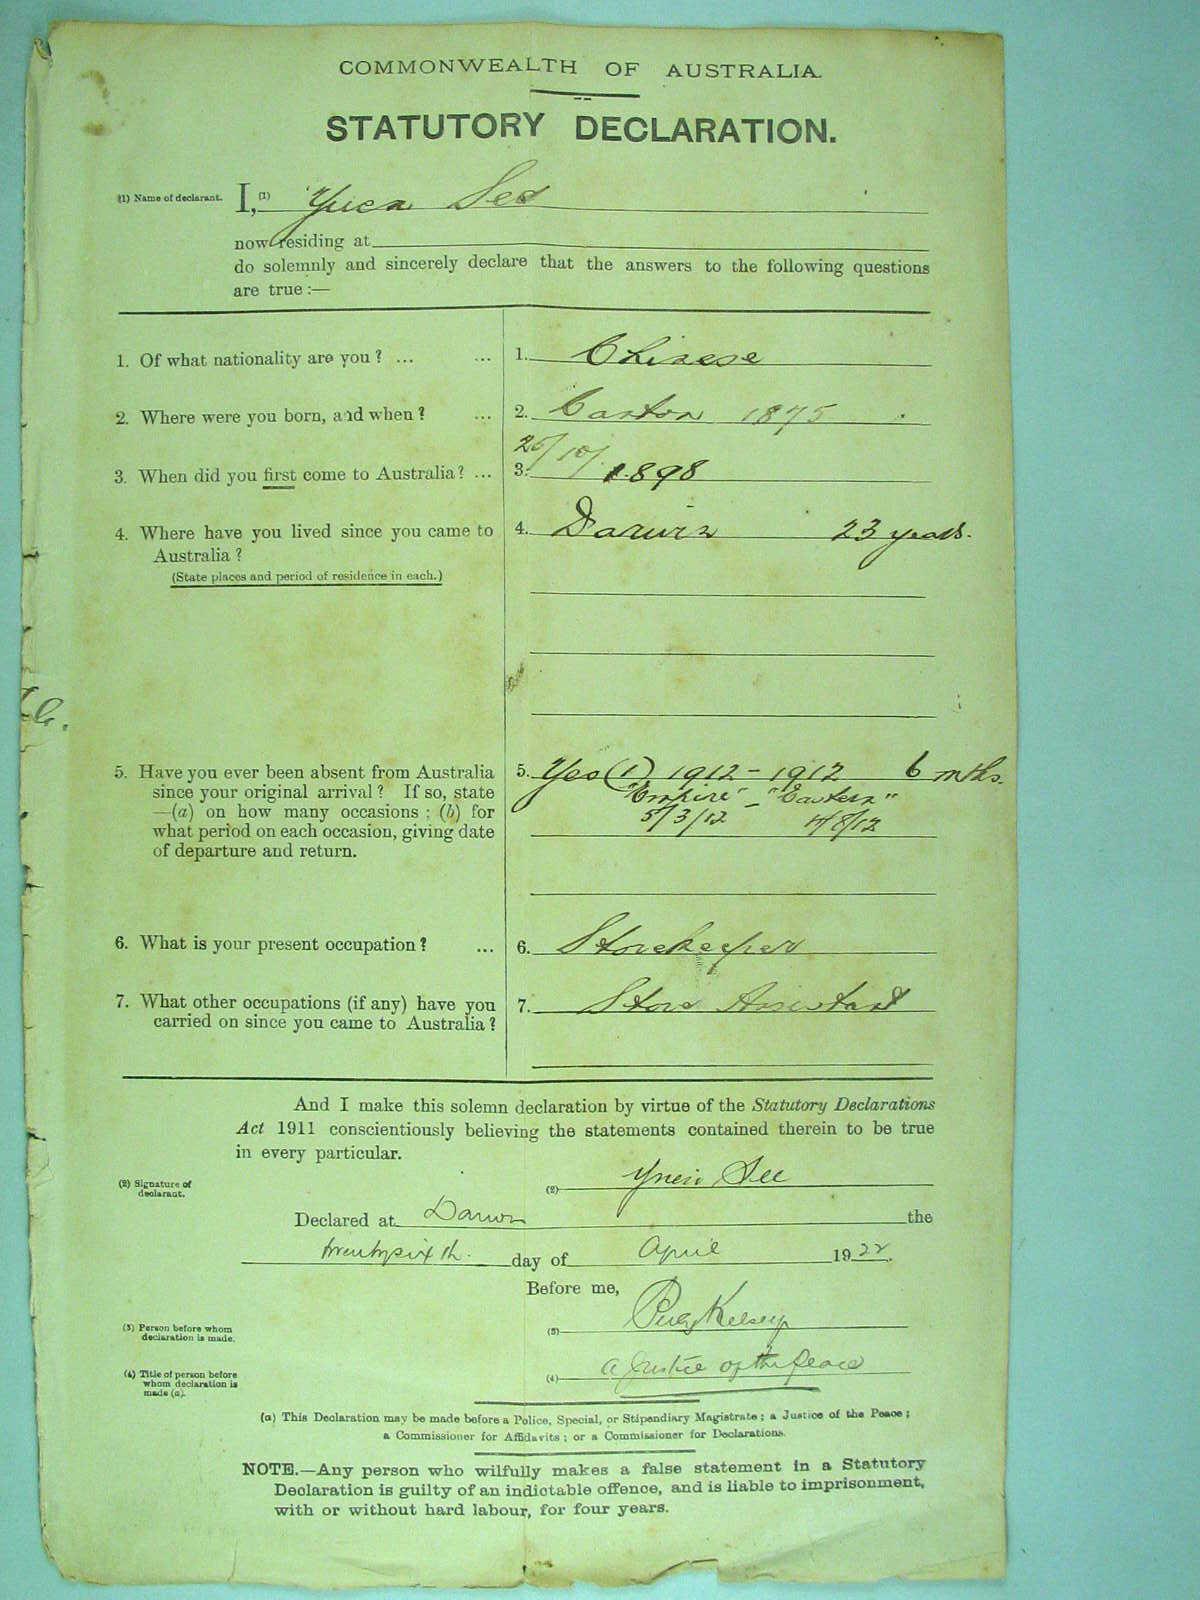 COMMONWEALTH OF AUSTRALIA.
STATUTORY DECLARATION.
(1) Name of declarant. I, (1) Yuen See
now residing at
do solemnly and sincerely declare that the answers to the following questions
are true :—
1. Of what nationality are you ? ... ... 1. Chinese
2. Where were you born, and when ? ... 2. Canton 1875
3. When did you first come to Australia ? ... 3. /10/ 1898
4. Where have you lived since you came to 4. Darwin 23 years.
Australia ?
(State places and period of residence in each.)
5. Have you ever been absent from Australia 5. Yes (1) 1912 - 1912 6 mths.
since your original arrival ? If so, state "Empire" - "Eastern"
—(a) on how many occasions ; (b) for 5/3/12 /8/12
what period on each occasion, giving date
of departure and return.
6. What is your present occupation ? ... 6. Storekeeper
7. What other occupations (if any) have you 7. Store Assistant
carried on since you came to Australia ?
And I make this solemn declaration by virtue of the Statutory Declarations
Act 1911 conscientiously believing the statements contained therein to be true
in every particular.
(2) Signature of
declarant. (2) Yuen See
Declared at Darwin the
twentysixth day of April 1922.
Before me,
(3) Person before whom
declaration is made. (3) Kelsey
(4) Title of person before
whom declaration is
made (a). (4) a Justice of the Peace
(a) This Declaration may be made before a Police, Special, or Stipendiary Magistrate ; a Justice of the Peace ;
a Commissioner for Affidavits ; or a Commissioner for Declarations.
NOTE.—Any person who wilfully makes a false statement in a Statutory
Declaration is guilty of an indictable offence, and is liable to imprisonment,
with or without hard labour, for four years.